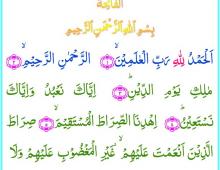 الفاتحة
بِسْمِ اللهِ الرَّحْمٰنِ الرَّحِيْمِ
اَلْحَمْدُ لِلّٰهِ رَبِّ الْعٰلَمِيْنَ ﴿١﴾ الرَّحْمٰنِ الرَّحِيْمِ ﴿٢﴾
مٰلِكِ يَوْمِ الدِّيْنِ ﴿٣﴾ اِيَّاكَ نَعْبُدُ وَاِيَّاكَ
نَسْتَعِيْنُ ﴿٤﴾ اِهْدِنَا الصِّرَاطَ الْمُسْتَقِيْمَ ﴿٥﴾ صِرَاطَ
الَّذِيْنَ اَنْعَمْتَ عَلَيْهِمْ غَيْرِ الْمَغْضُوْبِ عَلَيْهِمْ وَلَا